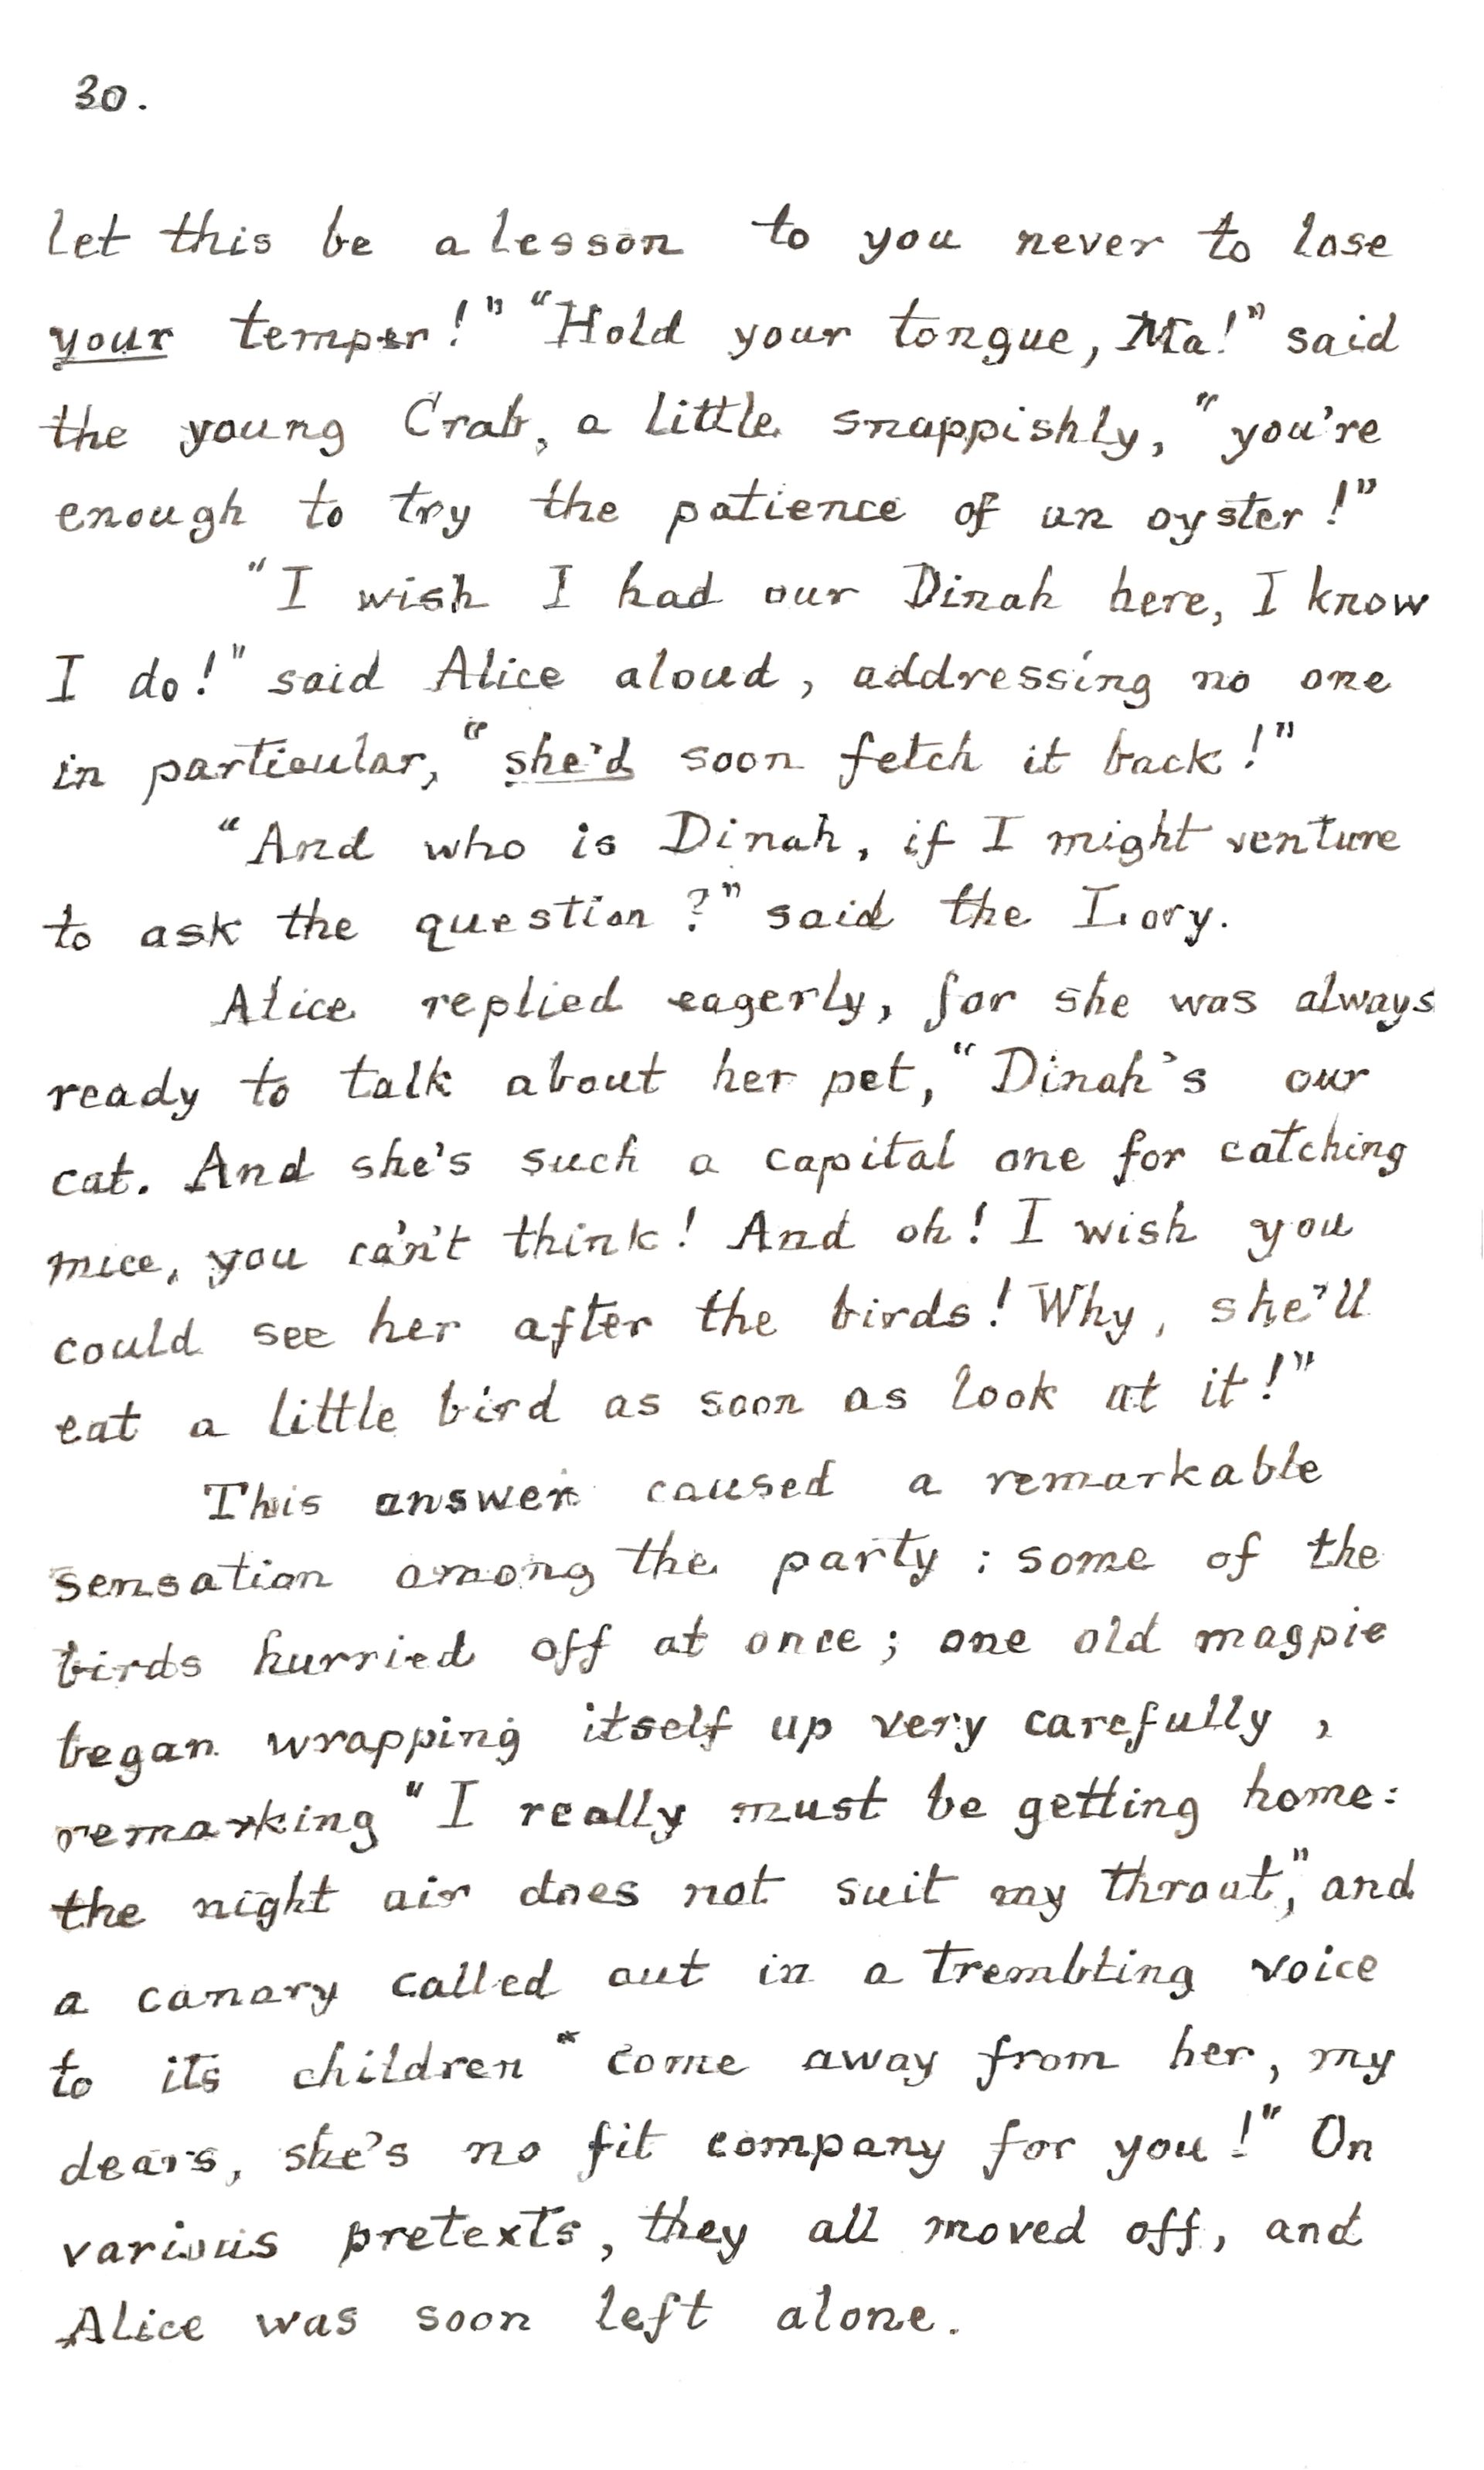 30.
let this be a lesson to you never to lose
your temper!" "Hold your tongue, Ma!" said
the young Crab, a little snappishly, "you're
enough to try the patience of an oyster!"
"I wish I had our Dinah here, I know
I do!" said Alice aloud, addressing no one
in particular, "she'd soon fetch it back!"
"And who is Dinah, if I might venture
to ask the question?" said the Lory.
Alice replied eagerly, for she was always
ready to talk about her pet, "Dinah's our
cat. And she's such a capital one for catching
mice, you ca'n't think! And oh! I wish you
could see her after the birds! Why, she'll
eat a little bird as soon as look at it!"
This answer caused a remarkable
sensation among the party: some of the
birds hurried off at once; one old magpie
began wrapping itself up very carefully,
remarking "I really must be getting home:
the night air does not suit my throat," and
a canary called out in a trembling voice
to its children "come away from her, my
dears, she's no fit company for you!" On
various pretexts, they all moved off, and
Alice was soon left alone.